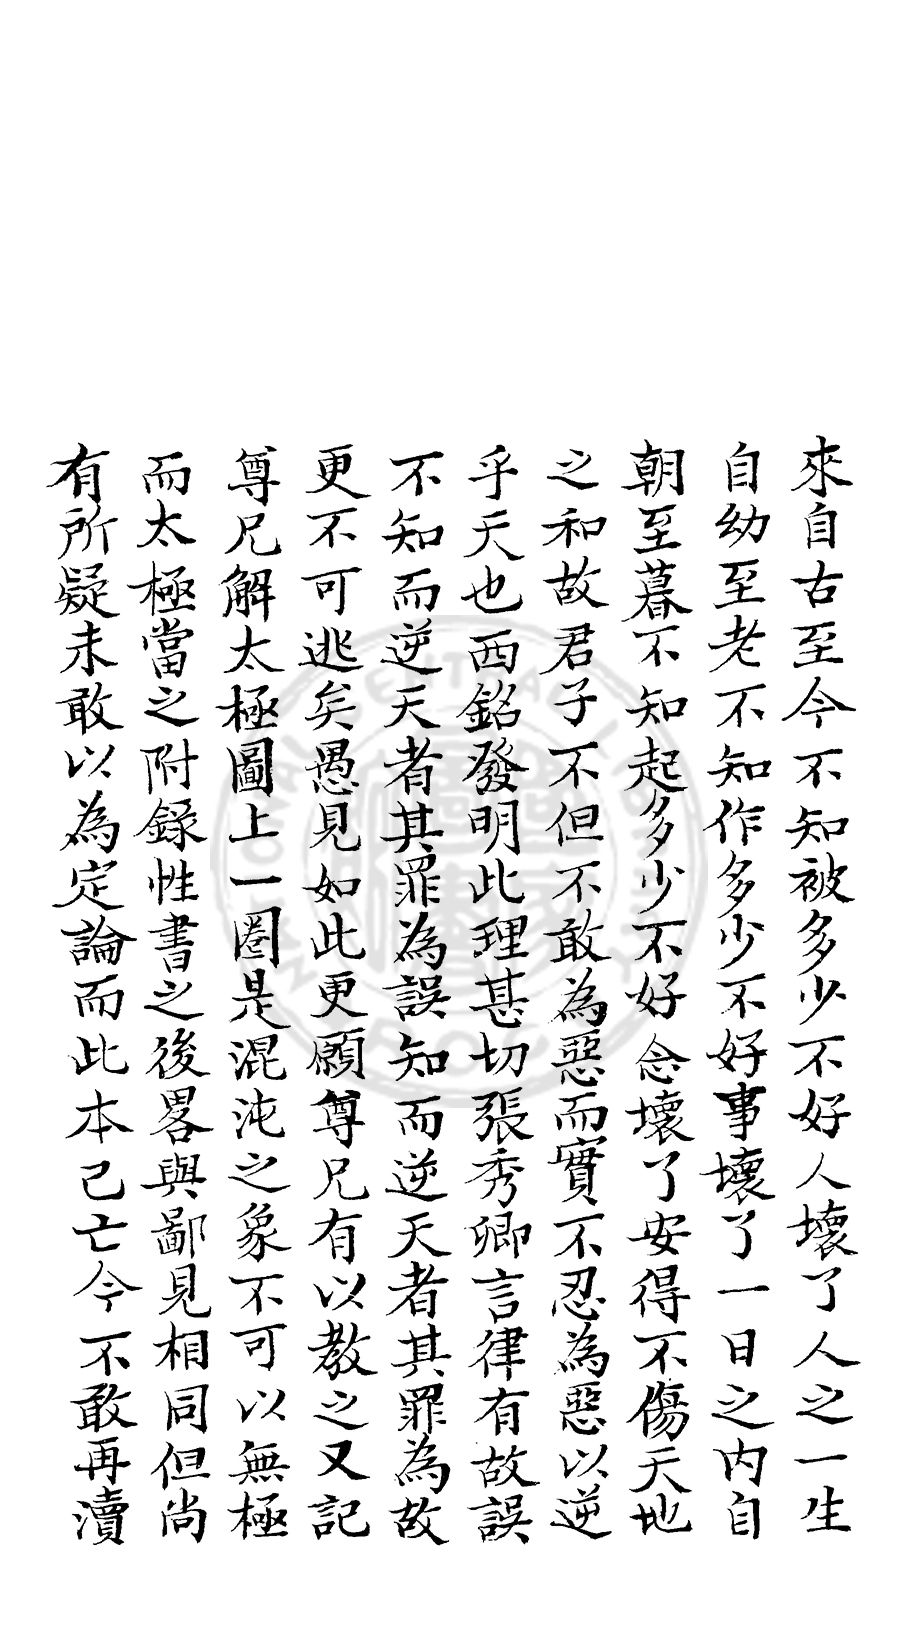 來自古至今不知被多少不好人壞了人之一生
自幼至老不知作多少不好事壞了一日之內自
朝至暮不知起多少不好念壞了安得不傷天地
之和故君子不但不敢為惡而實不忍為惡以逆
乎天也西銘發明此理甚切張秀卿言律有故誤
不知而逆天者其罪為誤知而逆天者其罪為故
更不可逃矣愚見如此更願尊兄有以教之又記
尊兄解太極圖上一圈是混沌之象不可以無極
而太極當之附錄性書之後畧與鄙見相同但尚
有所疑未敢以為定論而此本已亡今不敢再瀆